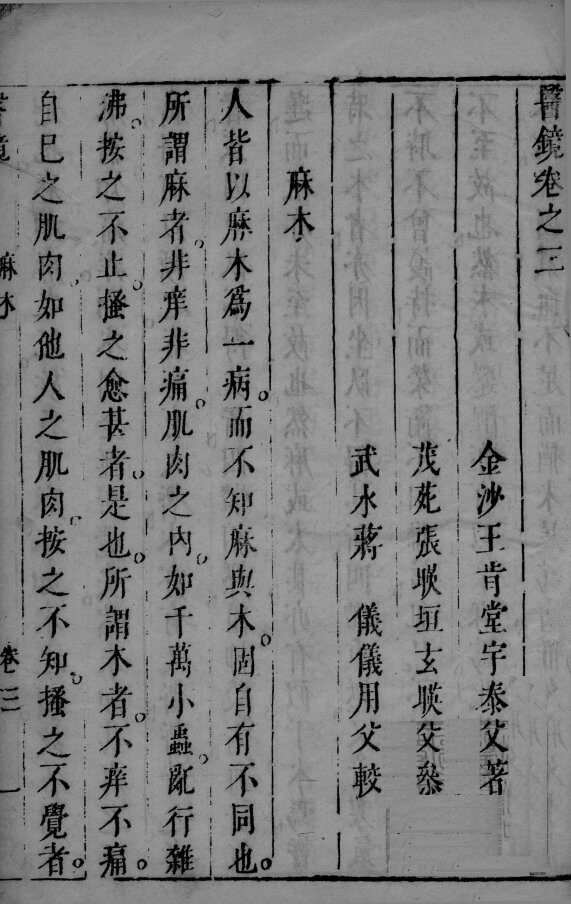 醫鏡卷之三
金沙王肯堂宇泰父著
茂苑張暎垣玄暎父叅
武水蔣 儀儀用父較
麻木
人皆以麻木爲一病。而不知麻與木。固自有不同也。
所謂麻者。非痒非痛。肌肉之內。如千萬小蟲。亂行雜
沸。按之不止。搔之愈甚者。是也。所謂木者。不痒不痛。
自已之肌肉。如他人之肌肉。按之不知。搔之不覺者。
醫鏡 麻木 卷三 一